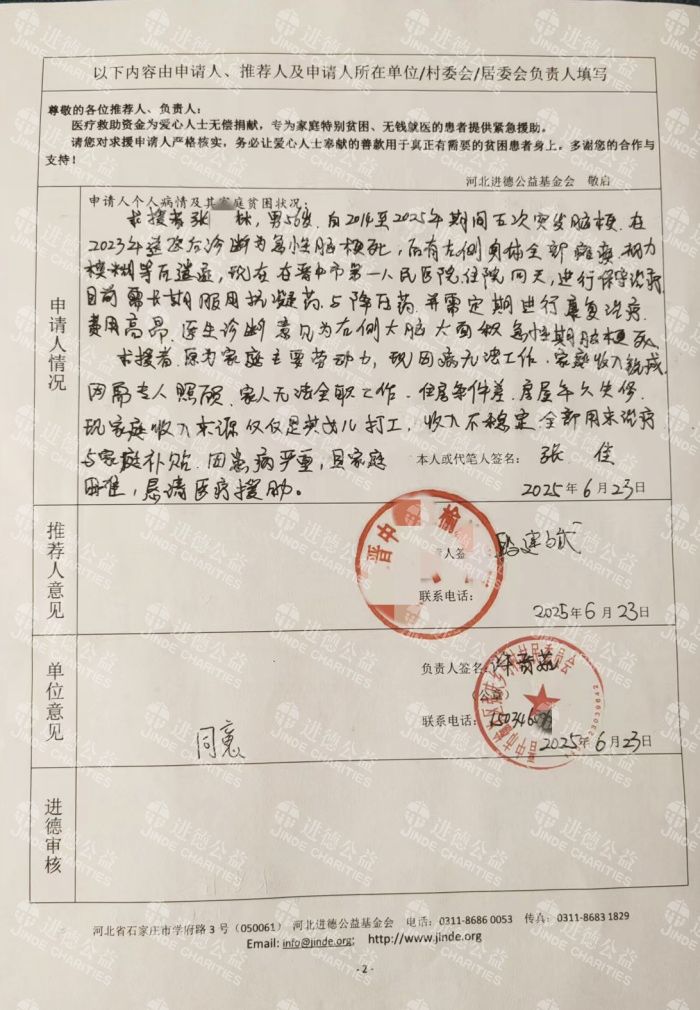 以下内容由申请人、推荐人及申请人所在单位/村委会/居委会负责人填写
尊敬的各位推荐人、负责人：
医疗救助资金为爱心人士无偿捐献，专为家庭特别贫困、无钱就医的患者提供紧急援助。
请您对求援申请人严格核实，务必让爱心人士奉献的善款用于真正有需要的贫困患者身上。多谢您的合作与
支持！
河北进德公益基金会 敬启
申请人情况
申请人个人病情及其家庭贫困状况：
求援者张 林，男56岁，自2014至2025年期间五次突发脑梗，在
2023年这次后诊断为急性脑梗死，后有左侧身体全部瘫痪，视力
模糊等后遗症，现在在晋中市第一人民医院住院四天，进行保守治疗
目前需长期服用抗凝药与降压药，并需定期进行康复治疗，
费用高昂，医生诊断意见为右侧大脑大面积急性期脑梗死
求援者原为家庭主要劳动力，现因病无法工作，家庭收入锐减
因需专人照顾，家人无法全职工作，住房条件差，房屋年久失修，
现家庭收入来源仅仅是其女儿打工，收入不稳定全部用来治疗
与家庭补贴，因患病严重，且家庭
困难，恳请医疗援助。
本人或代笔人签名：张 佳
2025年6月23日
推荐人意见
晋中 榆
人签
联系电话：
2025年6月23日
单位意见
同意
负责人签名：许
公益
村民委员会
联系电话：150346
2025年6月23日
进德审核
河北省石家庄市学府路3号（050061） 河北进德公益基金会 电话：0311-8686 0053 传真：0311-8683 1829
Email: info@jinde.org; http://www.jinde.org
- 2 -
进德公益
JINDE CHARITIES